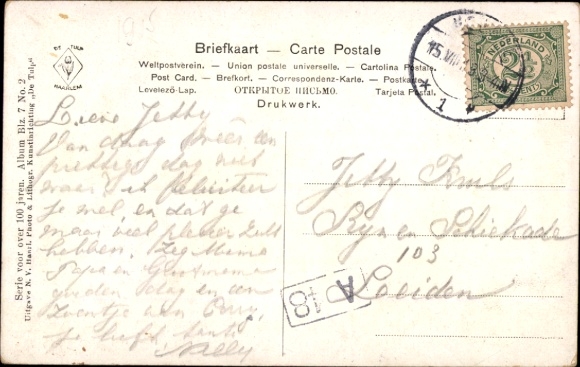 DE TULP
HAARLEM
Briefkaart — Carte Postale
Weltpostverein. — Union postale universelle. — Cartolina Postale.
Post Card. — Brefkort. — Correspondenz-Karte. — Postkarte.
Levelező-Lap. ОТКРЫТОЕ ПИСЬМО. Tarjeta Postal.
Drukwerk.
Serie voor over 100 jaren. Album Blz. 7 No. 2
Uitgave N. V. Photo & Lithogr. Kunstinrichting „De Tulp"
NEDERLAND
2½
CENT
15
1
Lieve Jetty
Van daag een
prettige dag niet
waar ik feliciteer
je wel, en dat ge
maar veel plezier zult
hebben. Zeg Mama
Papa en Grootmama
goeden dag en een
zoentje aan
je liefh. tante
Nelly
Jetty
Rijn en Schiekade
103
Leiden
A